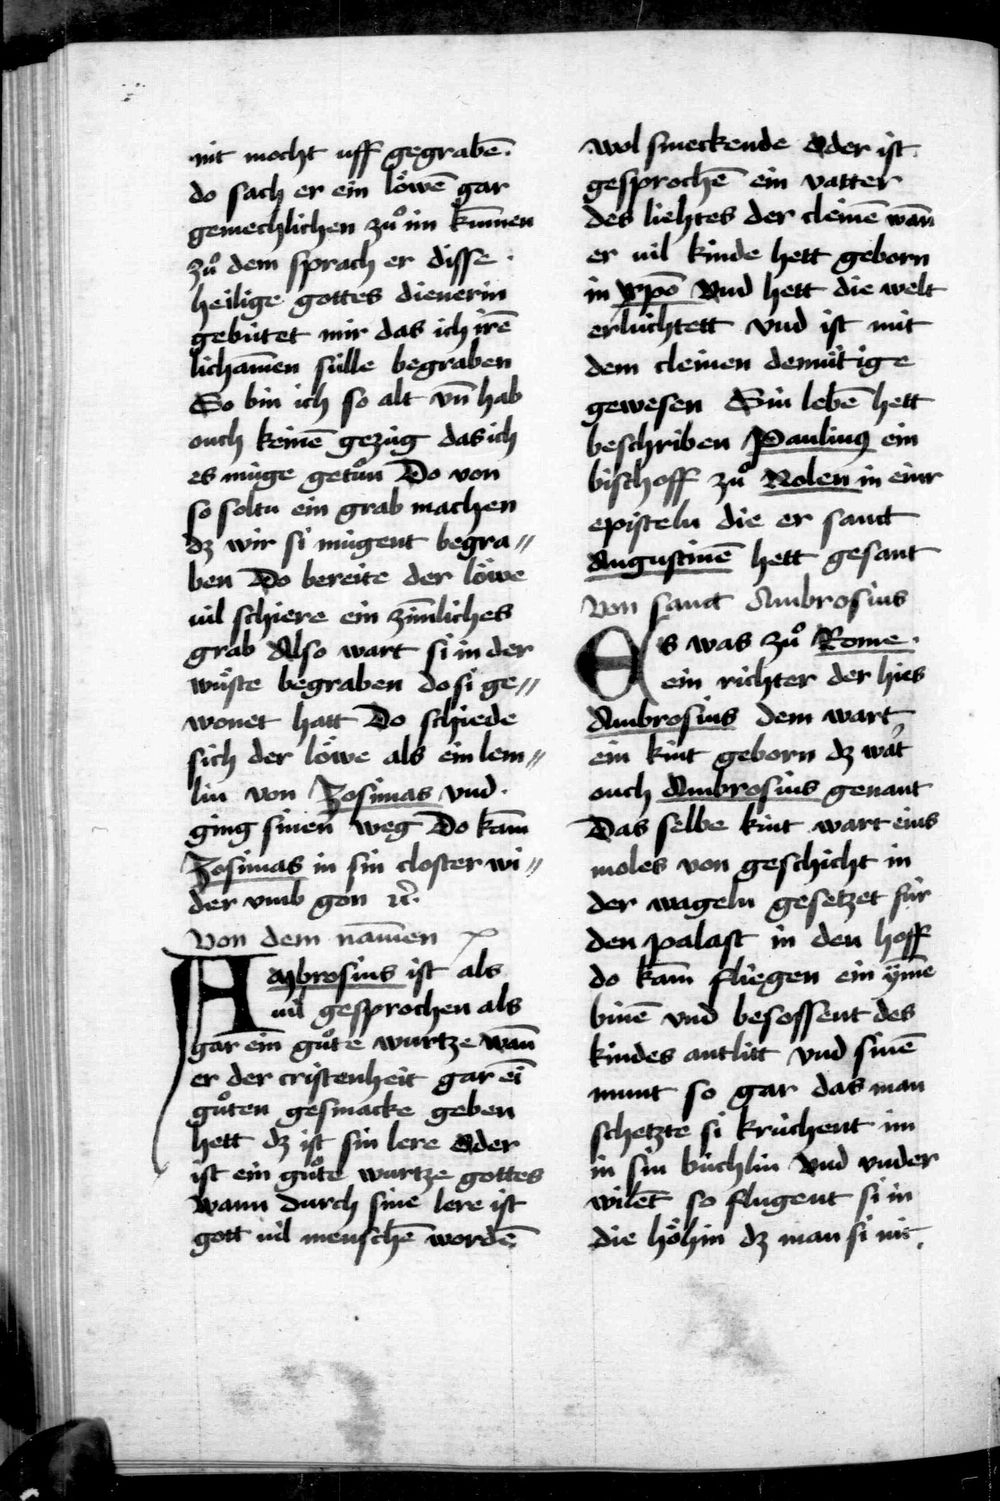 nit mocht uff gegrabē.
do sach er ein lo̎wē gar
gemechlichen zuͦ im kūmen
zuͦ dem sprach er disse ·
heilige gottes dienerin
gebútet mir das ich irē
lichāmen súlle begraben
So bin ich so alt vn̄ hab
ouch keinē gezúg das ich
es múge getuͦn Do von
so soltu ein grab machen
dz wir si múgent begra〃
ben Do bereite der lo̎we
vil schiere ein zimliches
grab Also wart si in der
wuͤste begraben do si ge〃
wonet hatt Do schiede
sich der lo̎we als ein lem〃
lin von Zosimas vnd ·
ging sinen weg Do kam̄
Zosimas in sin closter wi〃
der vmb gon ꝛc̄.
Von dem nāmen
Ambrosius ist als
vil gesprochen als
gar ein guͦte wurtze wan̄
er der cristenheit gar ei̅
guͦten gesmacke geben
hett dz ist sin lere Oder
ist ein guͦte wurtze gottes
wann durch sine lere ist
gott vil menschē wordē
wol smeckende Oder ist
gesprochē ein vatter
des liehtes der cleinē wan̄
er vil kinde hett geborn
in xp̄o Vnd hett die welt
erlúchtett vnd ist mit
dem cleinen demútige
gewesen Sin lebē hett
beschriben Paulinus ein
bischoff zuͦ Nolen in einr
episteln die er sanct
Augustinē hett gesant
Von sanct Ambrosius
Es was zuͦ Rome ·
ein richter der hies
Ambrosius dem wart
ein kint geborn dz wa͛t
ouch Ambrosius genant
Das selbe kint wart eins
moles von geschicht in
der wageln gesetzet fúr
den palast in den hoff
do kam̄ fliegen ein ÿme
binē vnd besossent des
kindes antlitt vnd sinē
munt so gar das man
schetzte si krúchent im
in sin búchlin Vnd vnder
wilēt so flugent si in
die ho̎hin dz man si nit